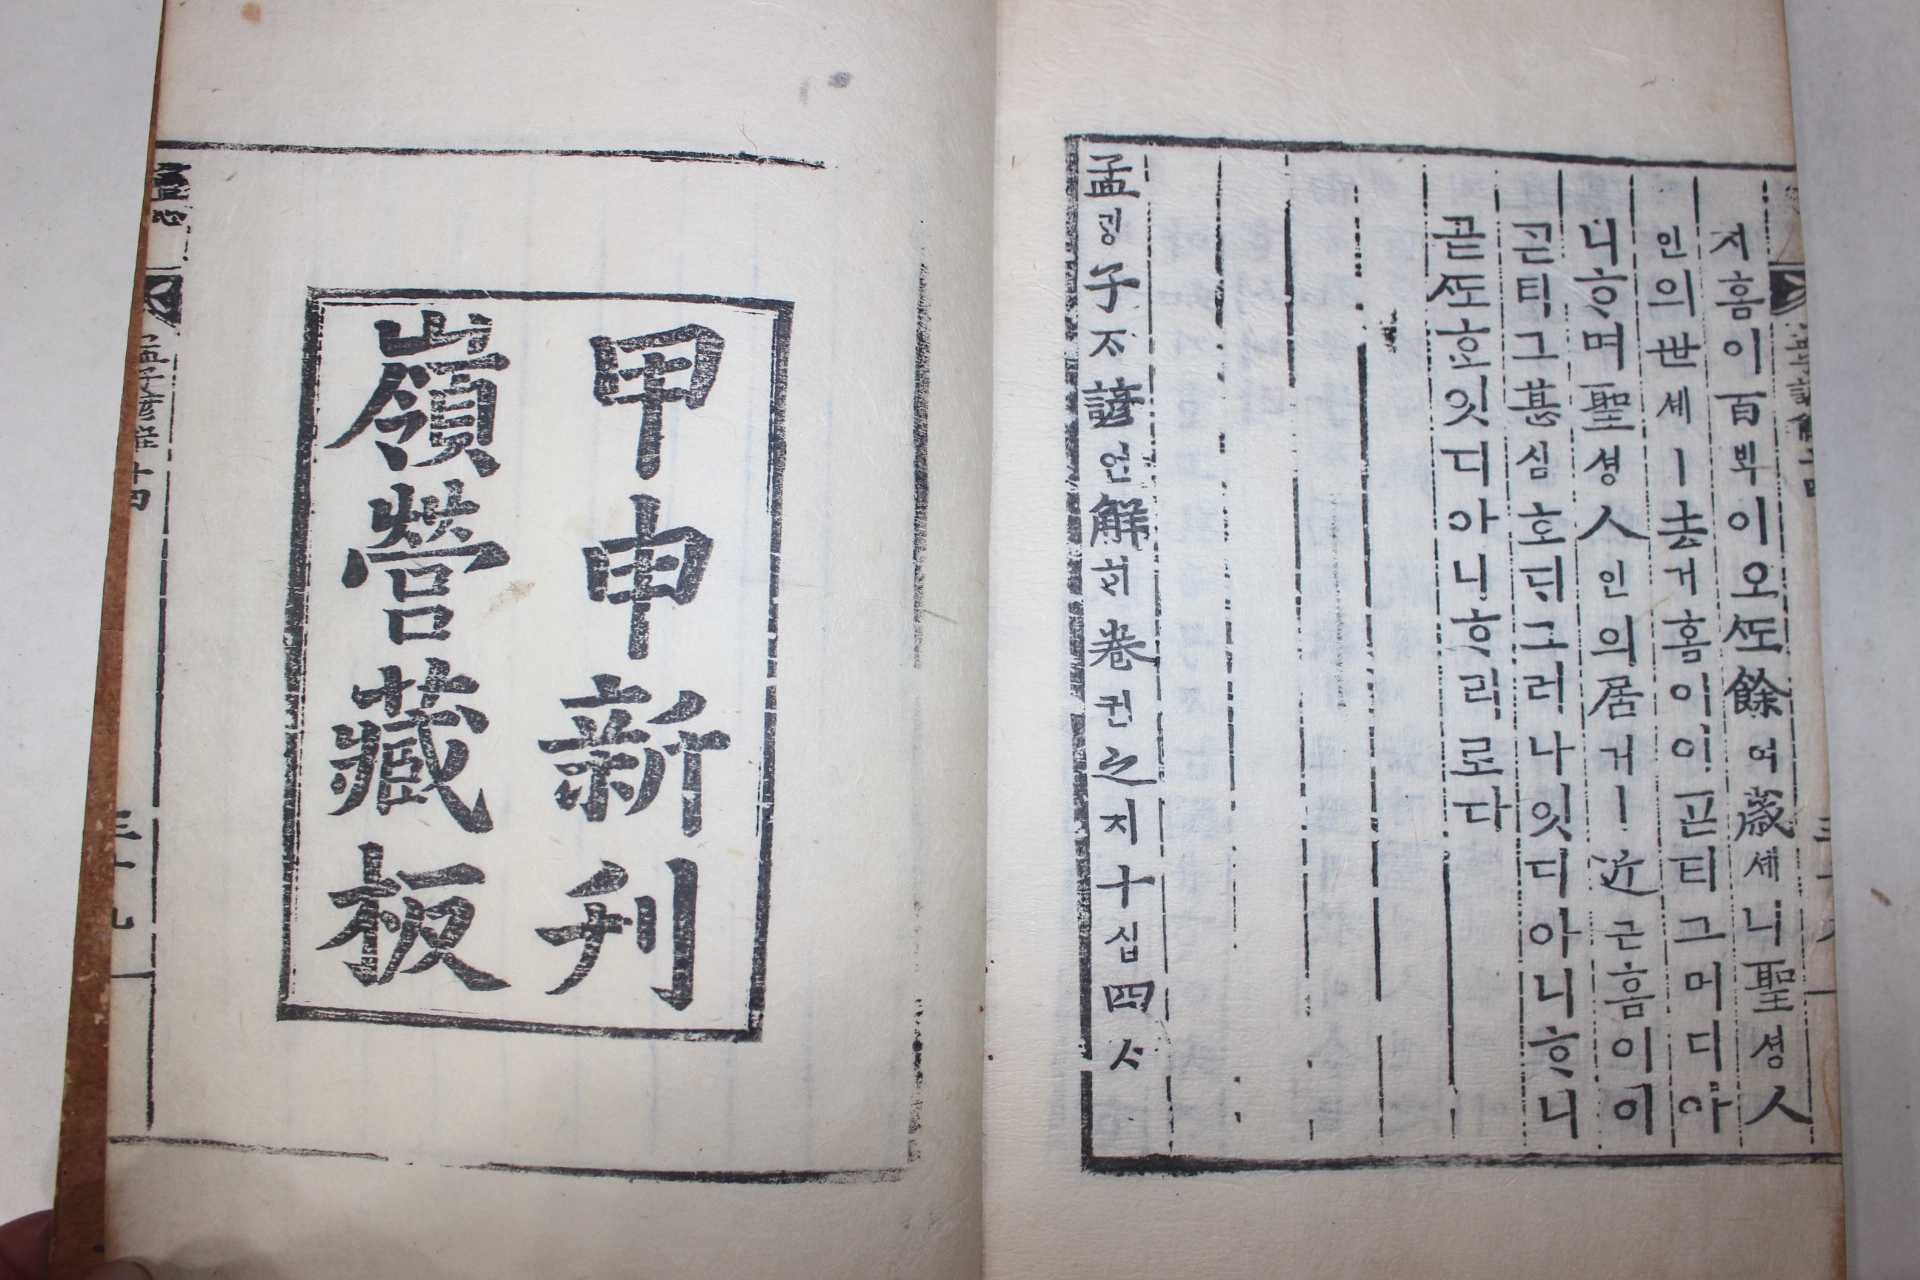 지홈이百ᄇᆡᆨ이오ᄯᅩ餘여歲셰니聖셩人
인의世셰ㅣ去거홈이이ᄀᆞᆮ티그머디아
니ᄒᆞ며聖셩人인의居거ㅣ近근홈이이
ᄀᆞᆮ티그甚심호ᄃᆡ그러나잇디아니ᄒᆞ니
곧ᄯᅩᄒᆞᆫ잇디아니ᄒᆞ리로다
孟ᄆᆡᆼ子ᄌᆞ諺언解ᄒᆡ卷권之지十십四ᄉᆞ
甲申新刊
嶺營藏板
孟子諺解十四
三十九